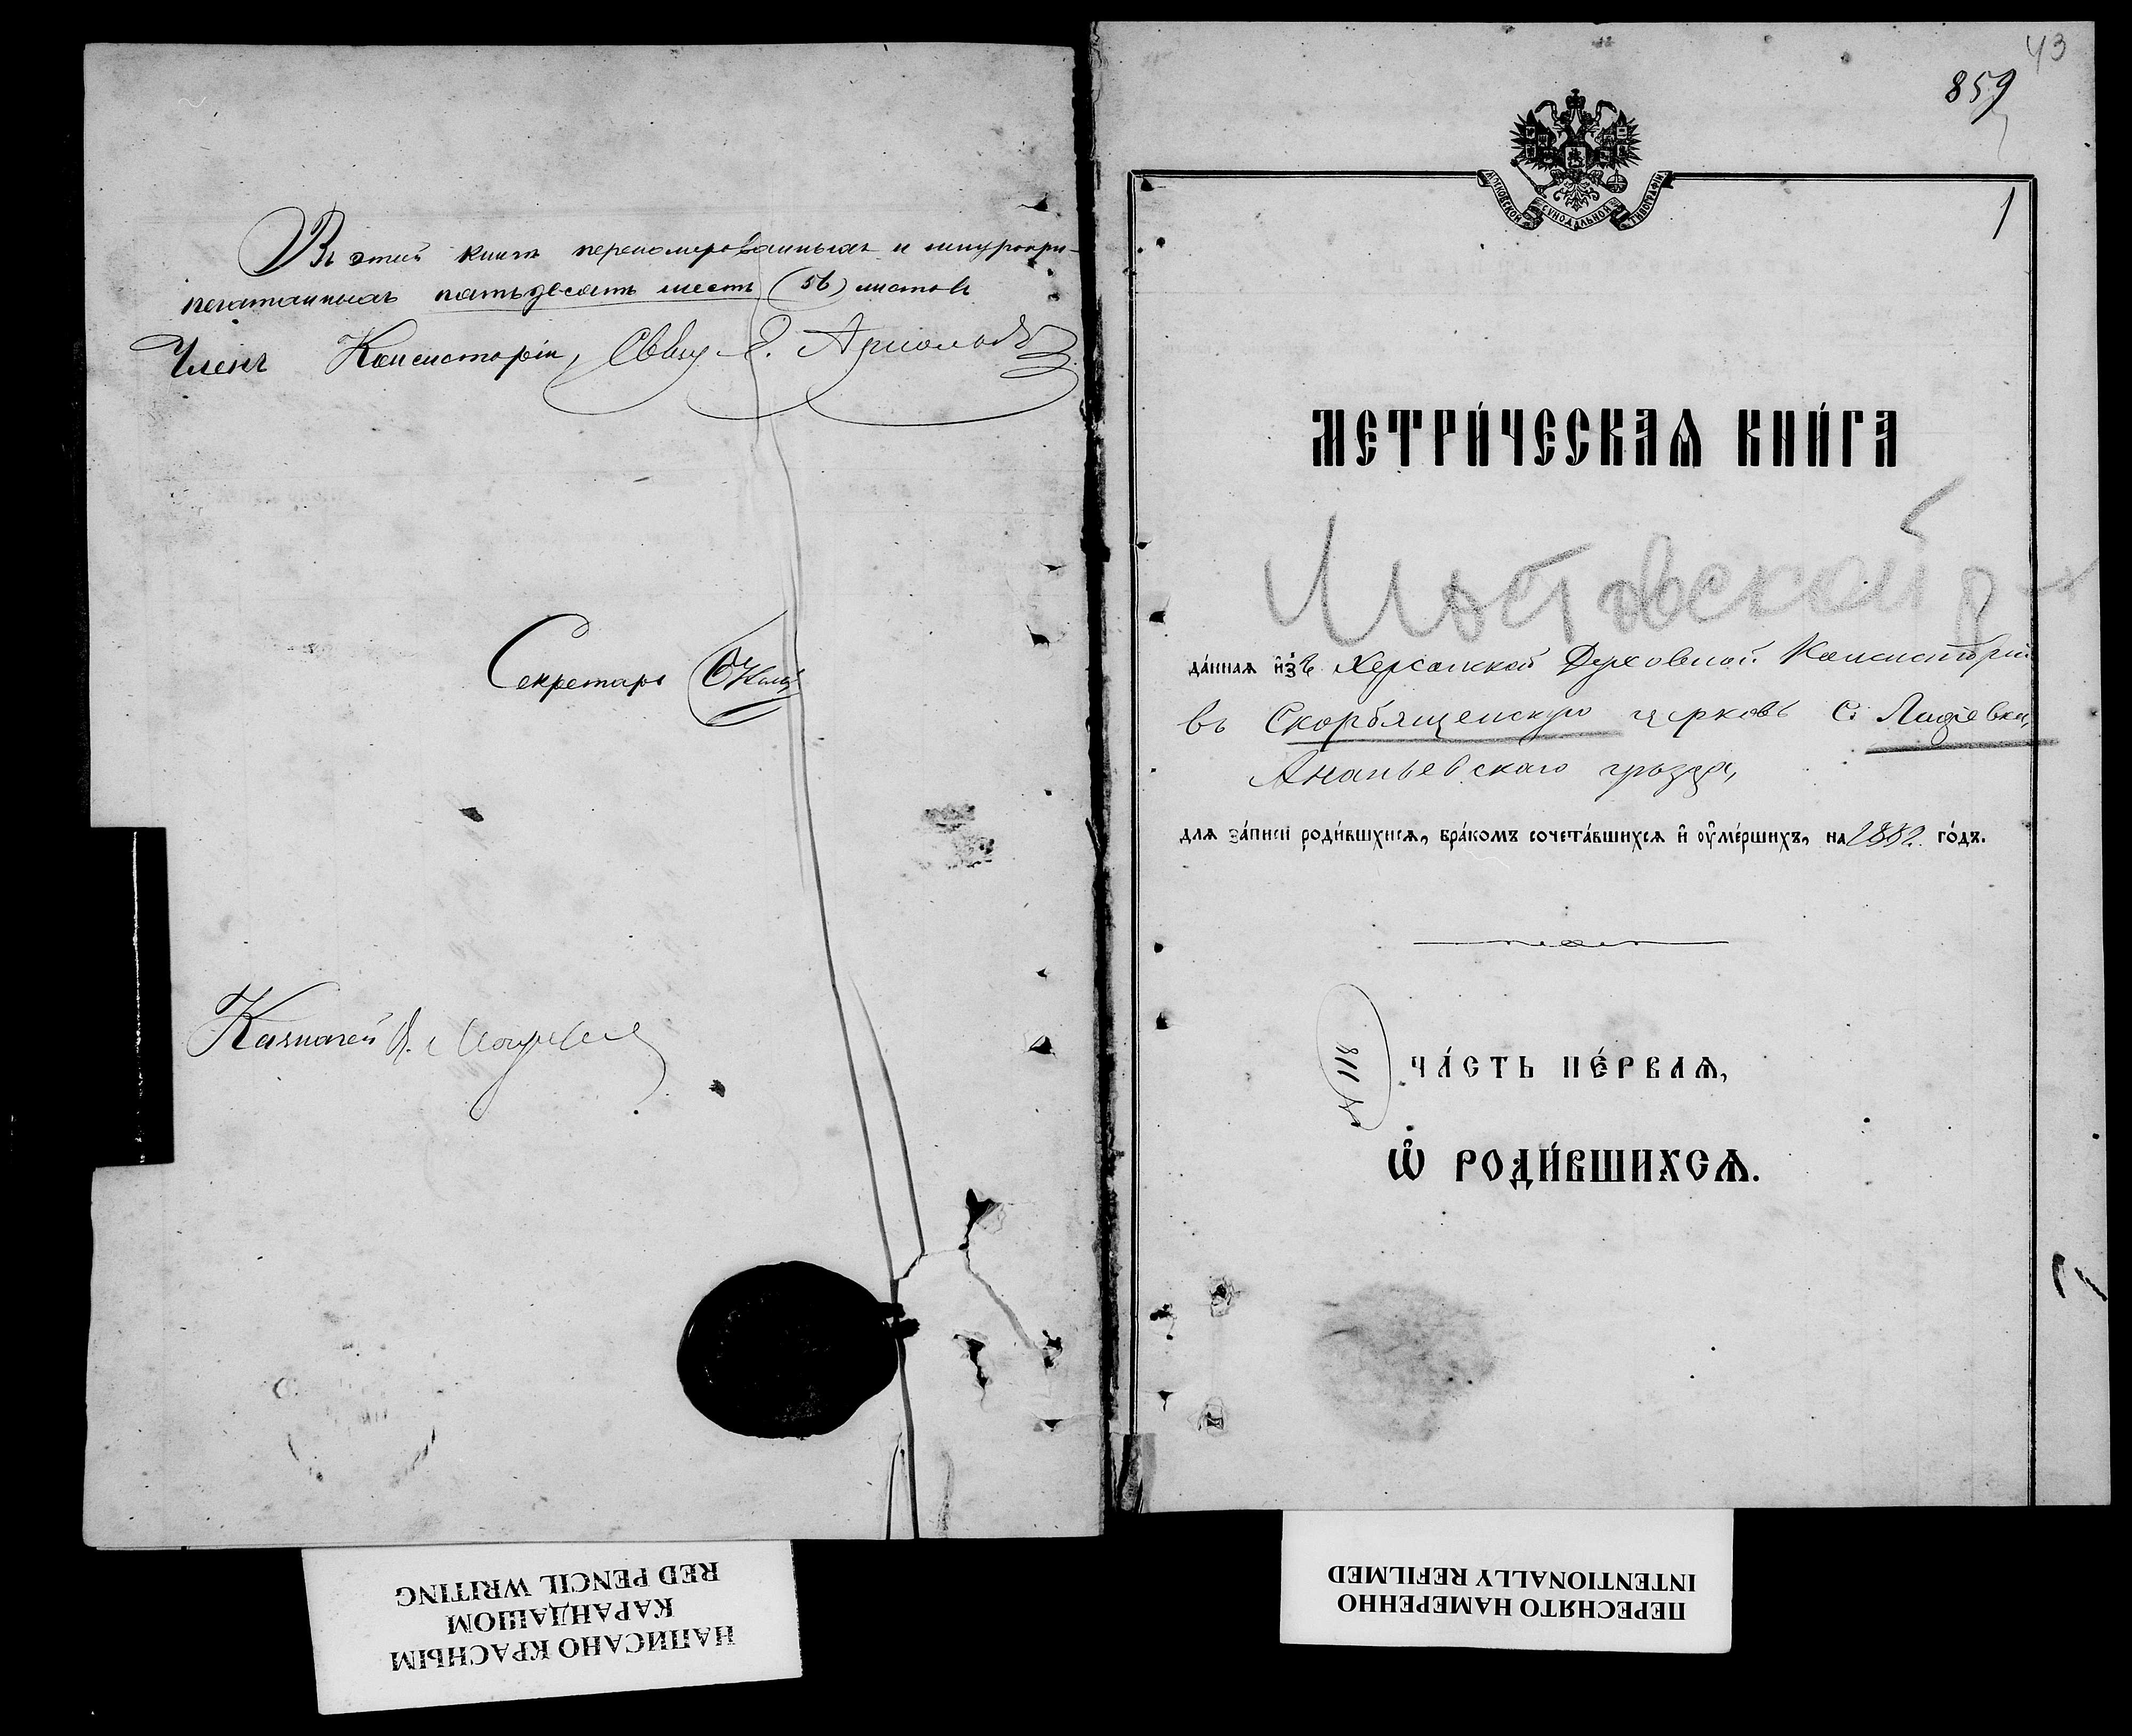 Въ этой книгѣ перенумерованныхъ и шнуропри-
печатанныхъ пятьдесятъ шесть (56) листовъ
Членъ Консисторіи,
Секретарь
Казначей
НАПИСАНО КРАСНЫМ
КАРАНДАШОМ
RED PENCIL WRITING
43
859
1
МОСКОВСКОЙ СУНОДАЛЬНОЙ ТИПОГРАФІИ
МЕТРИ́ЧЕСКАѦ КНИ́ГА
Мостовской р-н
да́ннаѧ и҆зъ Херсонской Духовной Консисторіи
въ Скорбященскую церковь С. Лидіевки,
Ананьевскаго уѣзда,
для за́писи роди́вшихсѧ, бра́комъ сочета́вшихсѧ и҆ ᲂу҆ме́ршихъ, на 1882 го́дъ.
811
ЧА́СТЬ ПЕ́РВАѦ,
Ѽ РОДИ́ВШИХСѦ.
ПЕРЕСНЯТО НАМЕРЕННО
INTENTIONALLY REFILMED